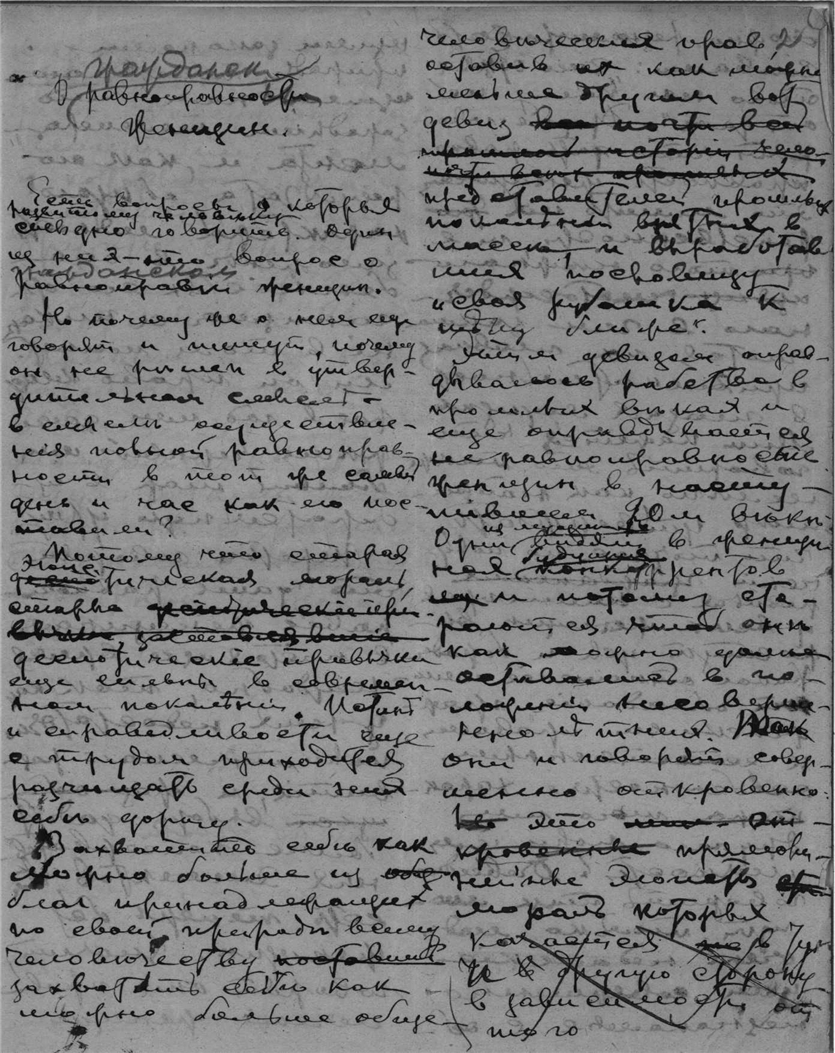 гражданск.
О равноправности
женщин.
Есть вопросы о которых
развитому человеку
стыдно говорить. Один
из них – это вопрос о
гражданском
равноправии женщин.
Но почему же о нем еще
говорят и пишут, почему
он не решен в утвер-
дительном смысле
в смысле осуществле-
ния полной равноправ-
ности в тот же самый
день и час как его пос-
тавили?
Потому что старая
деспотическая мораль
старые
деспотические привычки
еще сильны в современ-
ном поколении. Истине
и справедливости еще
с трудом приходится
расчищать среди них
себе дорогу.
Захватить себе как
можно больше из
благ принадлежащих
по своей природе всему
человечеству
захватить себе как
можно больше обще-
2
человеческих прав,
оставив их как можно
меньше другим вот
девиз
представителей прошлых
поколений взятых в
массе – и выработав
ших пословицу
„своя рубашка к
телу ближе“.
Этим девизом оправ-
дывалось рабство в
прошлых веках и
еще оправдывается
не равноправность
женщин в насту-
пившем 20м веке.
Одни из мужчин в женщи
нах конкуррентов
и потому ста-
раются чтоб они
как можно дольше
оставались в по-
ложении несовершен-
нолетних. Так
они и говорят совер-
шенно откровенно.
Это
прямоли-
нейные
мораль которых
в другую сторону
в зависимости от
того